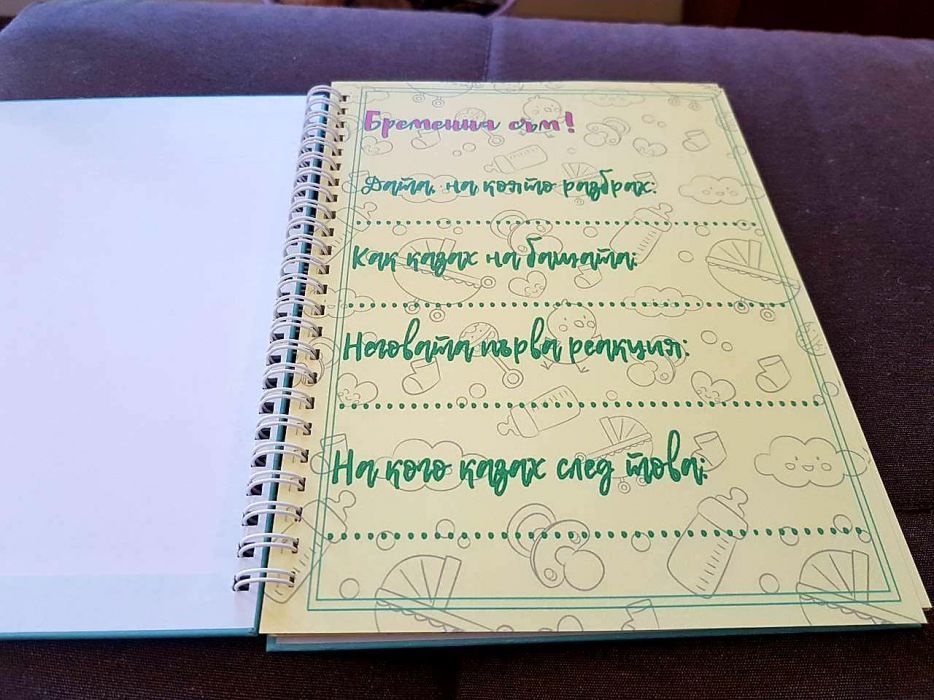 Бременна съм!
Дата, на която разбрах:
Как казах на бащата:
Неговата първа реакция:
На кого казах след това: